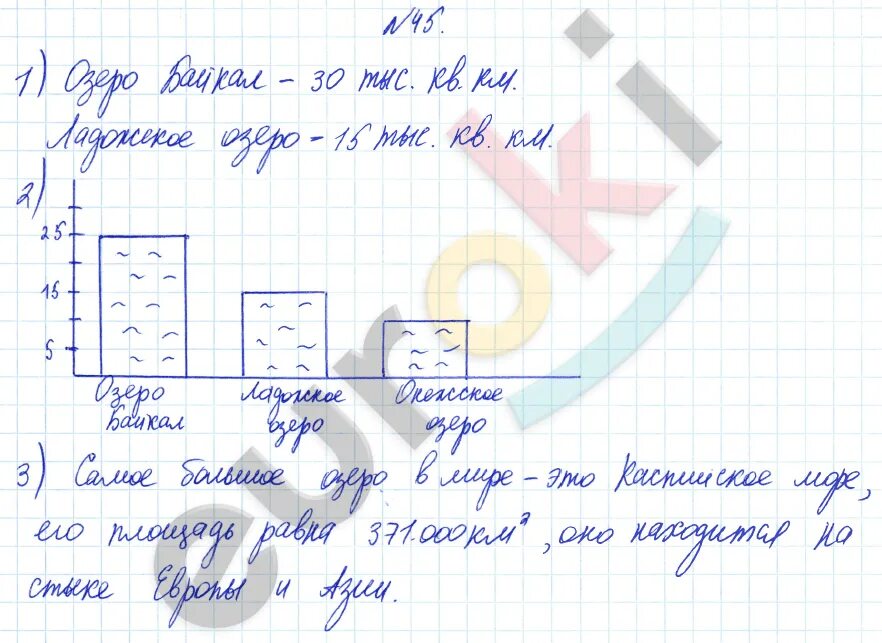 №45.
1) Озеро Байкал – 30 тыс. кв. км.
Ладожское озеро – 15 тыс. кв. км.
2)
25
15
5
Озеро Байкал
Ладожское озеро
Онежсское озеро
3) Самое большое озеро в мире – это Каспийское море,
его площадь равна 371.000 км², оно находится на
стыке Европы и Азии.
euroki